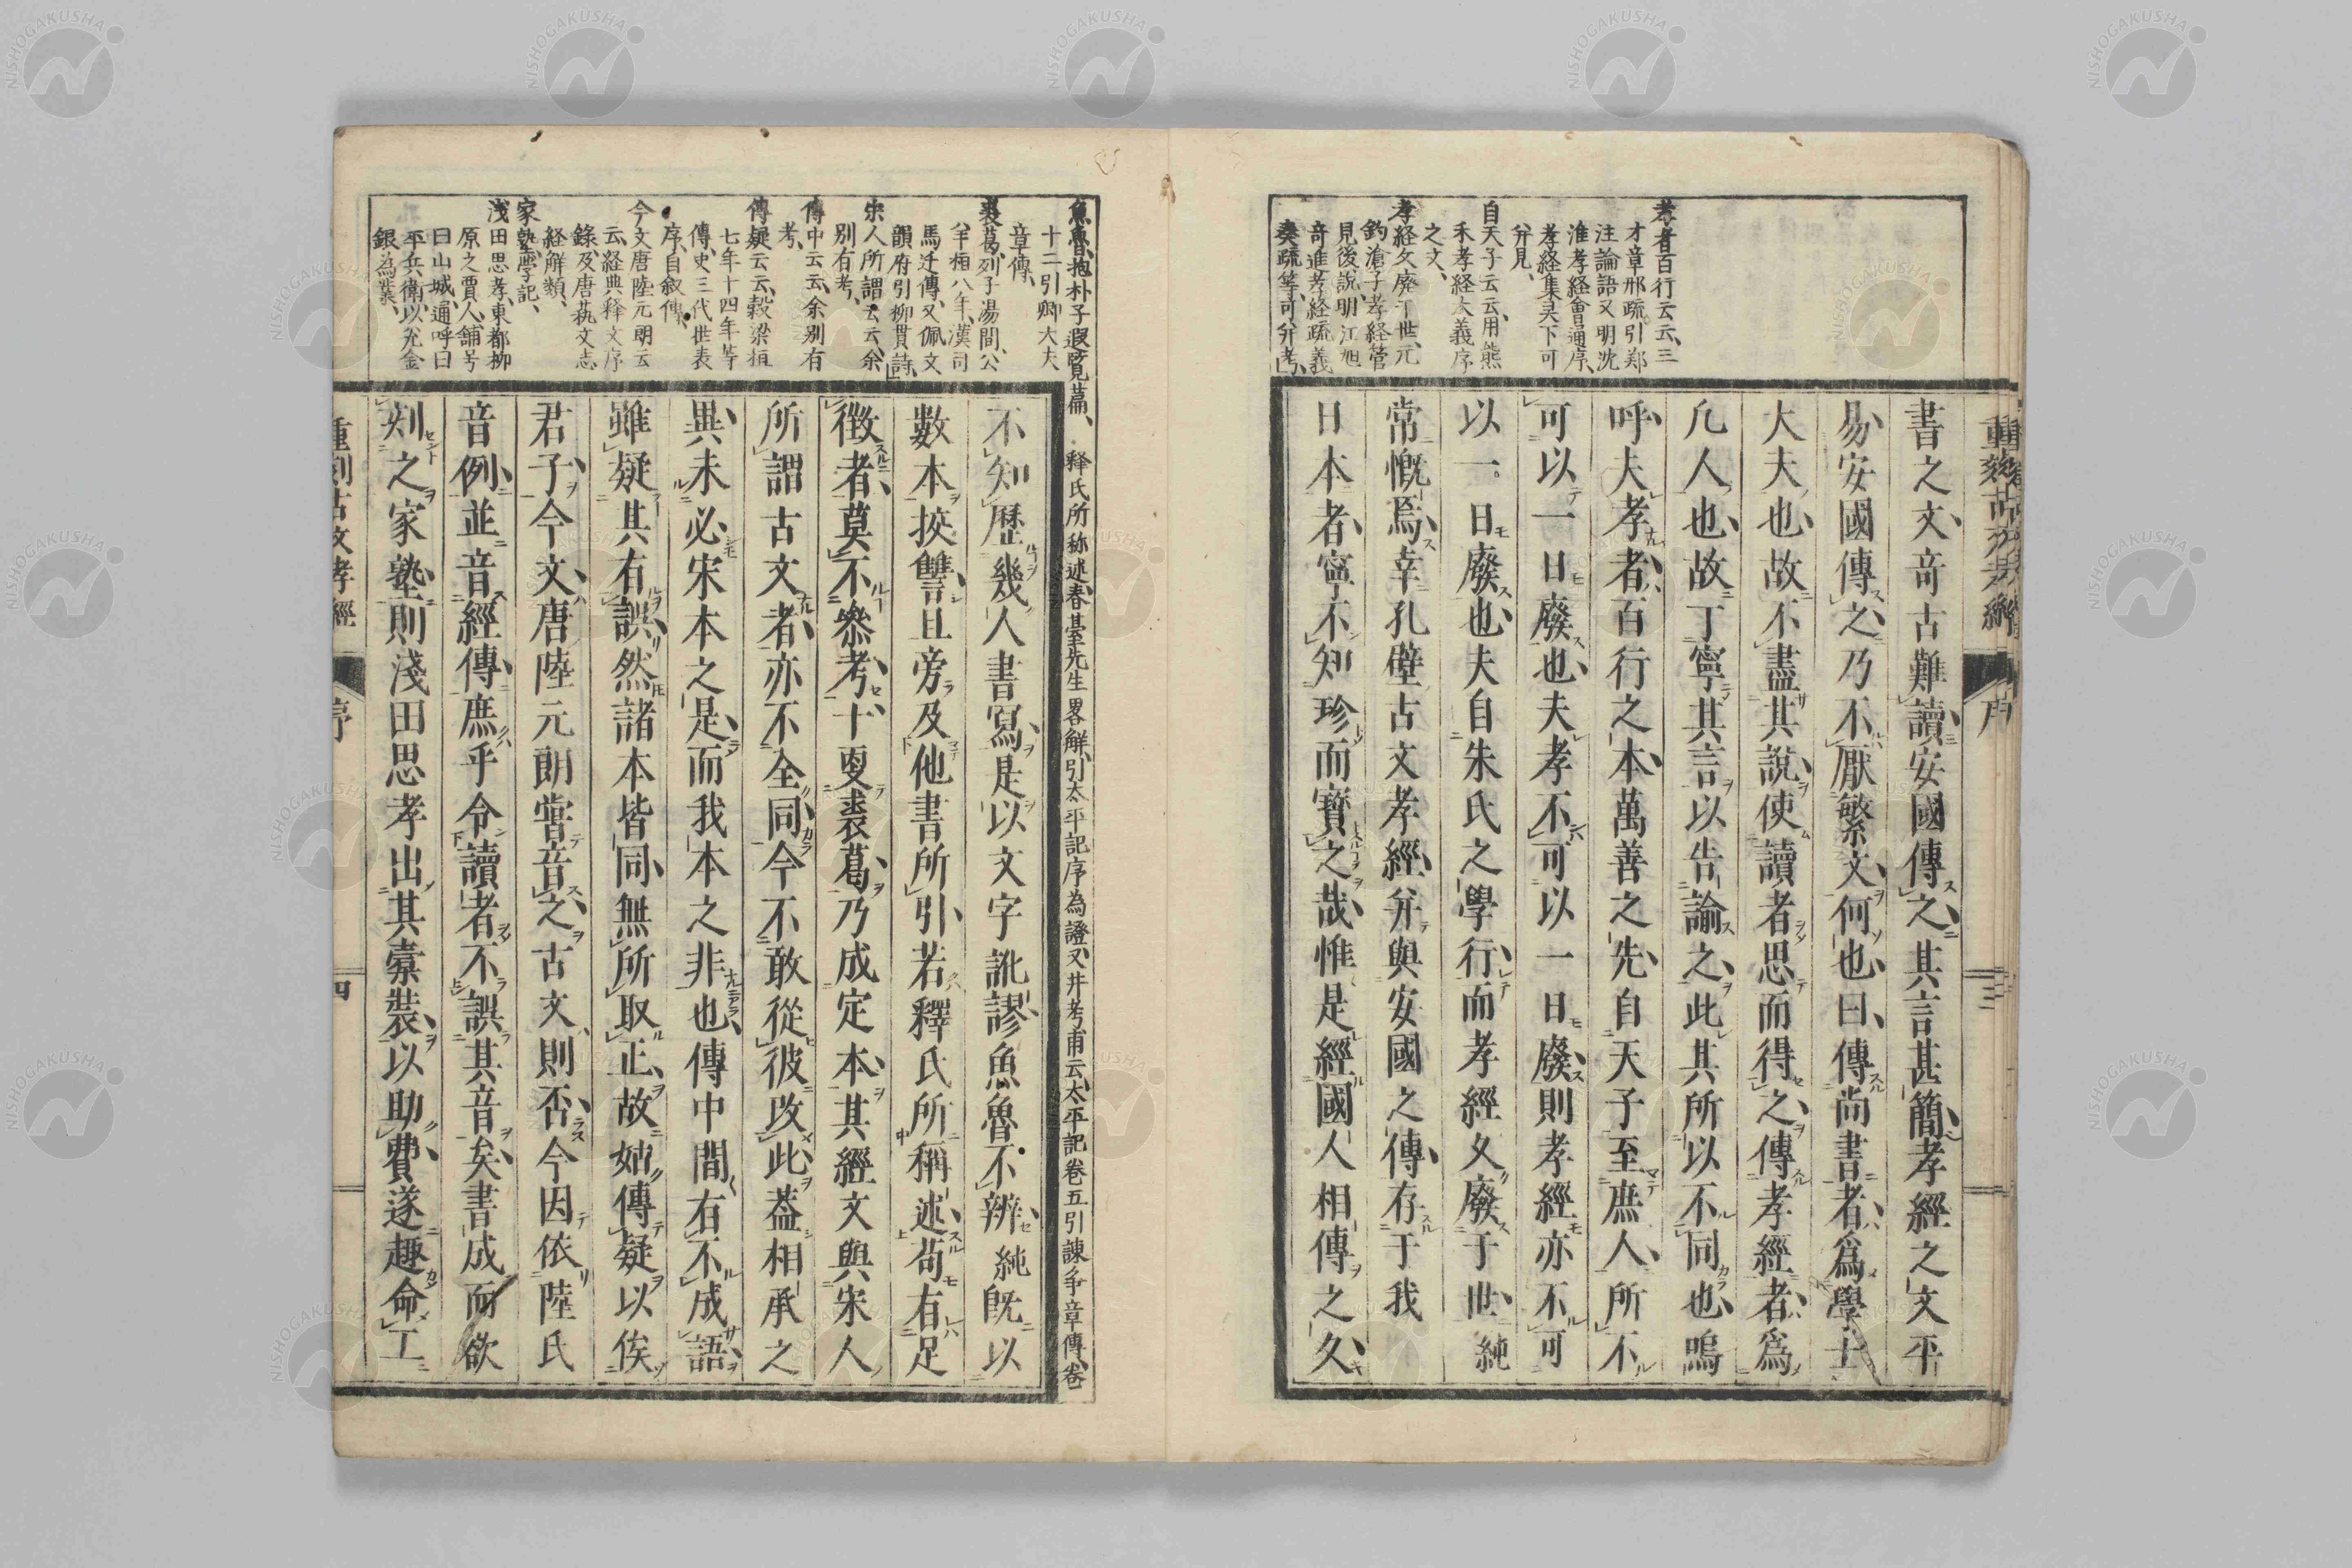 重刻古文孝經
序
三
孝者百行云云、三
才章邢疏引鄭
注論語又明沈
淮孝経會通序、
孝経集灵下可
并見、
自天子云云、用熊
禾孝経大義序
之文、
孝経久廃于世、元
鈞滄子孝経管
見後説、明江旭
奇進孝経疏義
奏疏等、可并考、
書之文、奇古難讀、安國傳之、其言甚簡、孝經之文平
易、安國傳之、乃不厭繁文、何也、曰、傳尚書者、爲學士
大夫也、故不盡其說、使讀者思而得之、傳孝經者、爲
凡人也、故丁寧其言以告諭之、此其所以不同也、嗚
呼、夫孝者、百行之本、萬善之先、自天子至庶人、所不
可以一日廢也、夫孝不可以一日廢、則孝經亦不可
以一日廢也、夫自朱氏之學行、而孝經久廢于世、純
常慨焉、幸孔壁古文孝經、并與安國之傳、存于我
日本者、寧不知珍而寶之哉、惟是經國人相傳之久、
魚魯、抱朴子遐覧篇、 釈氏所称述、春臺先生畧解、引太平記序為證、又井考甫云、太平記卷五引諫争章傳、卷
十二引卿大夫
章傳、
裘葛、列子湯問、公
羊桓八年、漢司
馬迁傳、又佩文
韻府引柳貫詩、
宋人所謂云云、余
別有考、
傳中云云、余別有
考、
傳疑云云、穀梁桓
七年十四年等
傳、史三代世表
序、自叙傳、
今文唐陸元朗云
云、経典釈文序
錄、及唐藝文志
経解類、
家塾、學記、
淺田思孝、東都柳
原之賈人、舗号
曰山城、通呼曰
平兵衛、以充金
銀為業、
不知歷幾人書寫、是以文字訛謬、魚魯不辨、純既以
數本挍讐、且旁及他書所引、若釋氏所稱述、苟有足
徵者、莫不參考、十更裘葛、乃成定本、其經文與宋人
所謂古文者、亦不全同、今不敢從彼改此、蓋相承之
異、未必宋本之是、而我本之非也、傳中間有不成語、
雖疑其有誤、然諸本皆同、無所取正、故姑傳疑以俟
君子、今文、唐陸元朗嘗音之、古文則否、今因依陸氏
音例、並音經傳、庶乎令讀者不誤其音矣、書成而欲
刻之家塾、則淺田思孝出其橐裝、以助費、遂趣命工
重刻古文孝經
序
四